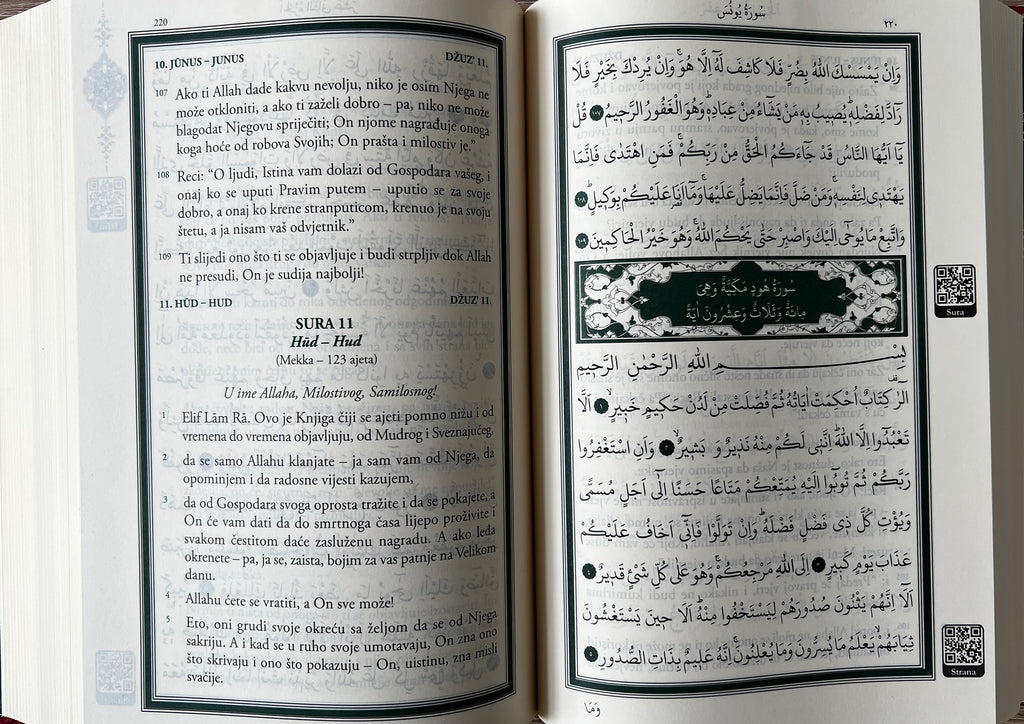 220
10. JŪNUS – JUNUS
DŽUZ’ 11.
107 Ako ti Allah dade kakvu nevolju, niko je osim Njega ne
može otkloniti, a ako ti zaželi dobro – pa, niko ne može
blagodat Njegovu spriječiti; On njome nagrađuje onoga
koga hoće od robova Svojih; On prašta i milostiv je.”
108 Reci: “O ljudi, Istina vam dolazi od Gospodara vašeg, i
onaj ko se uputi Pravim putem – uputio se za svoje
dobro, a onaj ko krene stranputicom, krenuo je na svoju
štetu, a ja nisam vaš odvjetnik.”
109 Ti slijedi ono što ti se objavljuje i budi strpljiv dok Allah
ne presudi, On je sudija najbolji!
11. HŪD – HUD
DŽUZ’ 11.
SURA 11
Hūd – Hud
(Mekka – 123 ajeta)
U ime Allaha, Milostivog, Samilosnog!
1 Elif Lām Rā. Ovo je Knjiga čiji se ajeti pomno nižu i od
vremena do vremena objavljuju, od Mudrog i Sveznajućeg,
2 da se samo Allahu klanjate – ja sam vam od Njega, da
opominjem i da radosne vijesti kazujem,
3 da od Gospodara svoga oprosta tražite i da se pokajete, a
On će vam dati da do smrtnoga časa lijepo proživite i
svakom čestitom daće zasluženu nagradu. A ako leđa
okrenete – pa, ja se, zaista, bojim za vas patnje na Velikom
danu.
4 Allahu ćete se vratiti, a On sve može!
5 Eto, oni grudi svoje okreću sa željom da se od Njega
sakriju. A i kad se u ruho svoje umotavaju, On zna ono
što skrivaju i ono što pokazuju – On, uistinu, zna misli
svačije.
سُورَةُ يُونُسَ
٢٢٠
وَاِنْ يَمْسَسْكَ اللّٰهُ بِضُرٍّ فَلَا كَاشِفَ لَهُٓ اِلَّا هُوَۚ وَاِنْ يُرِدْكَ بِخَيْرٍ فَلَا
رَآدَّ لِفَضْلِهٖۜ يُصٖيبُ بِهٖ مَنْ يَشَٓاءُ مِنْ عِبَادِهٖۜ وَهُوَ الْغَفُورُ الرَّحٖيمُ ١٠٧ قُلْ
يَٓا اَيُّهَا النَّاسُ قَدْ جَٓاءَكُمُ الْحَقُّ مِنْ رَبِّكُمْۚ فَمَنِ اهْتَدٰى فَاِنَّمَا
يَهْتَدٖى لِنَفْسِهٖۚ وَمَنْ ضَلَّ فَاِنَّمَا يَضِلُّ عَلَيْهَاۚ وَمَٓا اَنَا۬ عَلَيْكُمْ بِوَكٖيلٍۜ ١٠٨
وَاتَّبِعْ مَا يُوحٰٓى اِلَيْكَ وَاصْبِرْ حَتّٰى يَحْكُمَ اللّٰهُۚ وَهُوَ خَيْرُ الْحَاكِمٖينَ ١٠٩
سُورَةُ هُودٍ مَكِّيَّةٌ وَهِىَ
مِائَةٌ وَثَلَاثٌ وَعِشْرُونَ اٰيَةً
بِسْمِ اللّٰهِ الرَّحْمٰنِ الرَّحٖيمِ
الٓرٰ۠ كِتَابٌ اُحْكِمَتْ اٰيَاتُهُ ثُمَّ فُصِّلَتْ مِنْ لَدُنْ حَكٖيمٍ خَبٖيرٍۙ ١ اَلَّا
تَعْبُدُٓوا اِلَّا اللّٰهَۜ اِنَّنٖى لَكُمْ مِنْهُ نَذٖيرٌ وَ بَشٖيرٌۙ ٢ وَاَنِ اسْتَغْفِرُوا
رَبَّكُمْ ثُمَّ تُوبُٓوا اِلَيْهِ يُمَتِّعْكُمْ مَتَاعًا حَسَنًا اِلٰٓى اَجَلٍ مُسَمًّى
وَيُؤْتِ كُلَّ ذٖى فَضْلٍ فَضْلَهُۜ وَاِنْ تَوَلَّوْا فَاِنّٖٓى اَخَافُ عَلَيْكُمْ
عَذَابَ يَوْمٍ كَبٖيرٍ ٣ اِلَى اللّٰهِ مَرْجِعُكُمْۚ وَهُوَ عَلٰى كُلِّ شَىْءٍ قَدٖيرٌ ٤
اَلَٓا اِنَّهُمْ يَثْنُونَ صُدُورَهُمْ لِيَسْتَخْفُوا مِنْهُۜ اَلَا حٖينَ يَسْتَغْشُونَ
ثِيَابَهُمْۙ يَعْلَمُ مَا يُسِرُّونَ وَمَا يُعْلِنُونَۚ اِنَّهُ عَلٖيمٌ بِذَاتِ الصُّدُورِ ٥
وَمَا
Sura
Strana